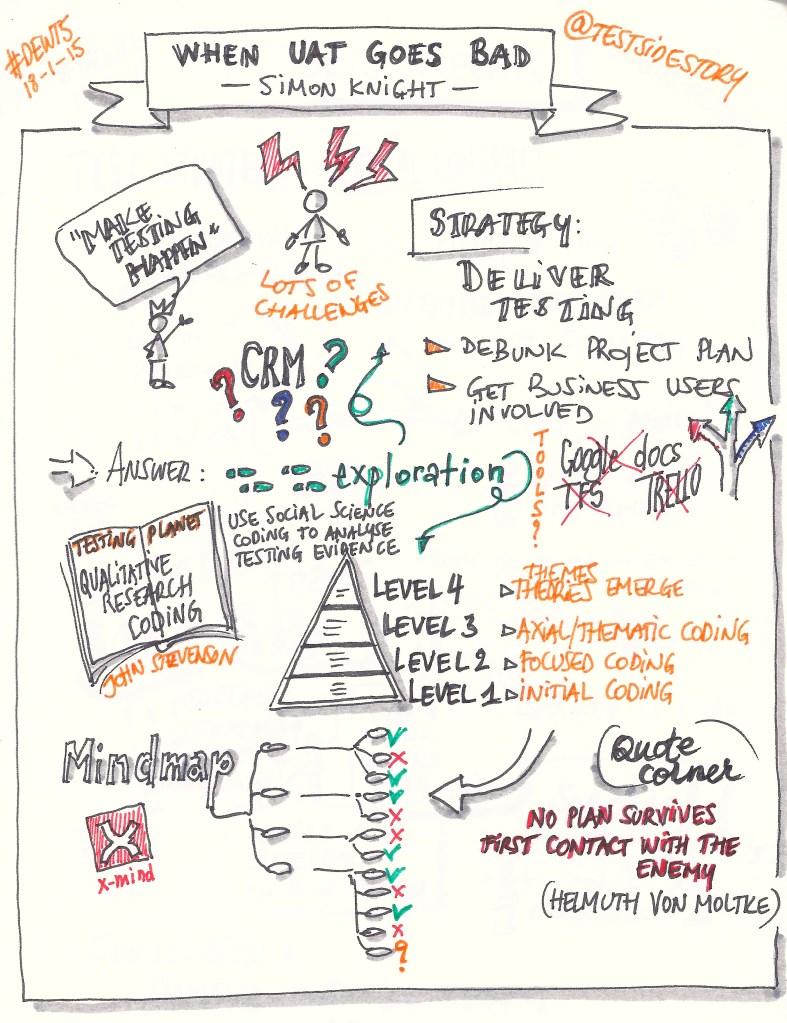 #DEWT5
18-1-15
WHEN UAT GOES BAD
— SIMON KNIGHT —
@TESTSIDESTORY
"MAKE
TESTING
HAPPEN"
LOTS OF
CHALLENGES
STRATEGY:
DELIVER
TESTING
DEBUNK PROJECT PLAN
GET BUSINESS USERS
INVOLVED
? CRM ?
? ?
ANSWER: exploration
TOOLS?
Google docs
TFS TRELLO
USE SOCIAL SCIENCE
CODING TO ANALYSE
TESTING EVIDENCE
TESTING PLANET
QUALITATIVE
RESEARCH
CODING
JOHN STEVENSON
THEMES
LEVEL 4 THEORIES EMERGE
LEVEL 3 AXIAL/THEMATIC CODING
LEVEL 2 FOCUSED CODING
LEVEL 1 INITIAL CODING
Mindmap
X
x-mind
?
Quote
corner
NO PLAN SURVIVES
FIRST CONTACT WITH THE
ENEMY
(HELMUTH VON MOLTKE)